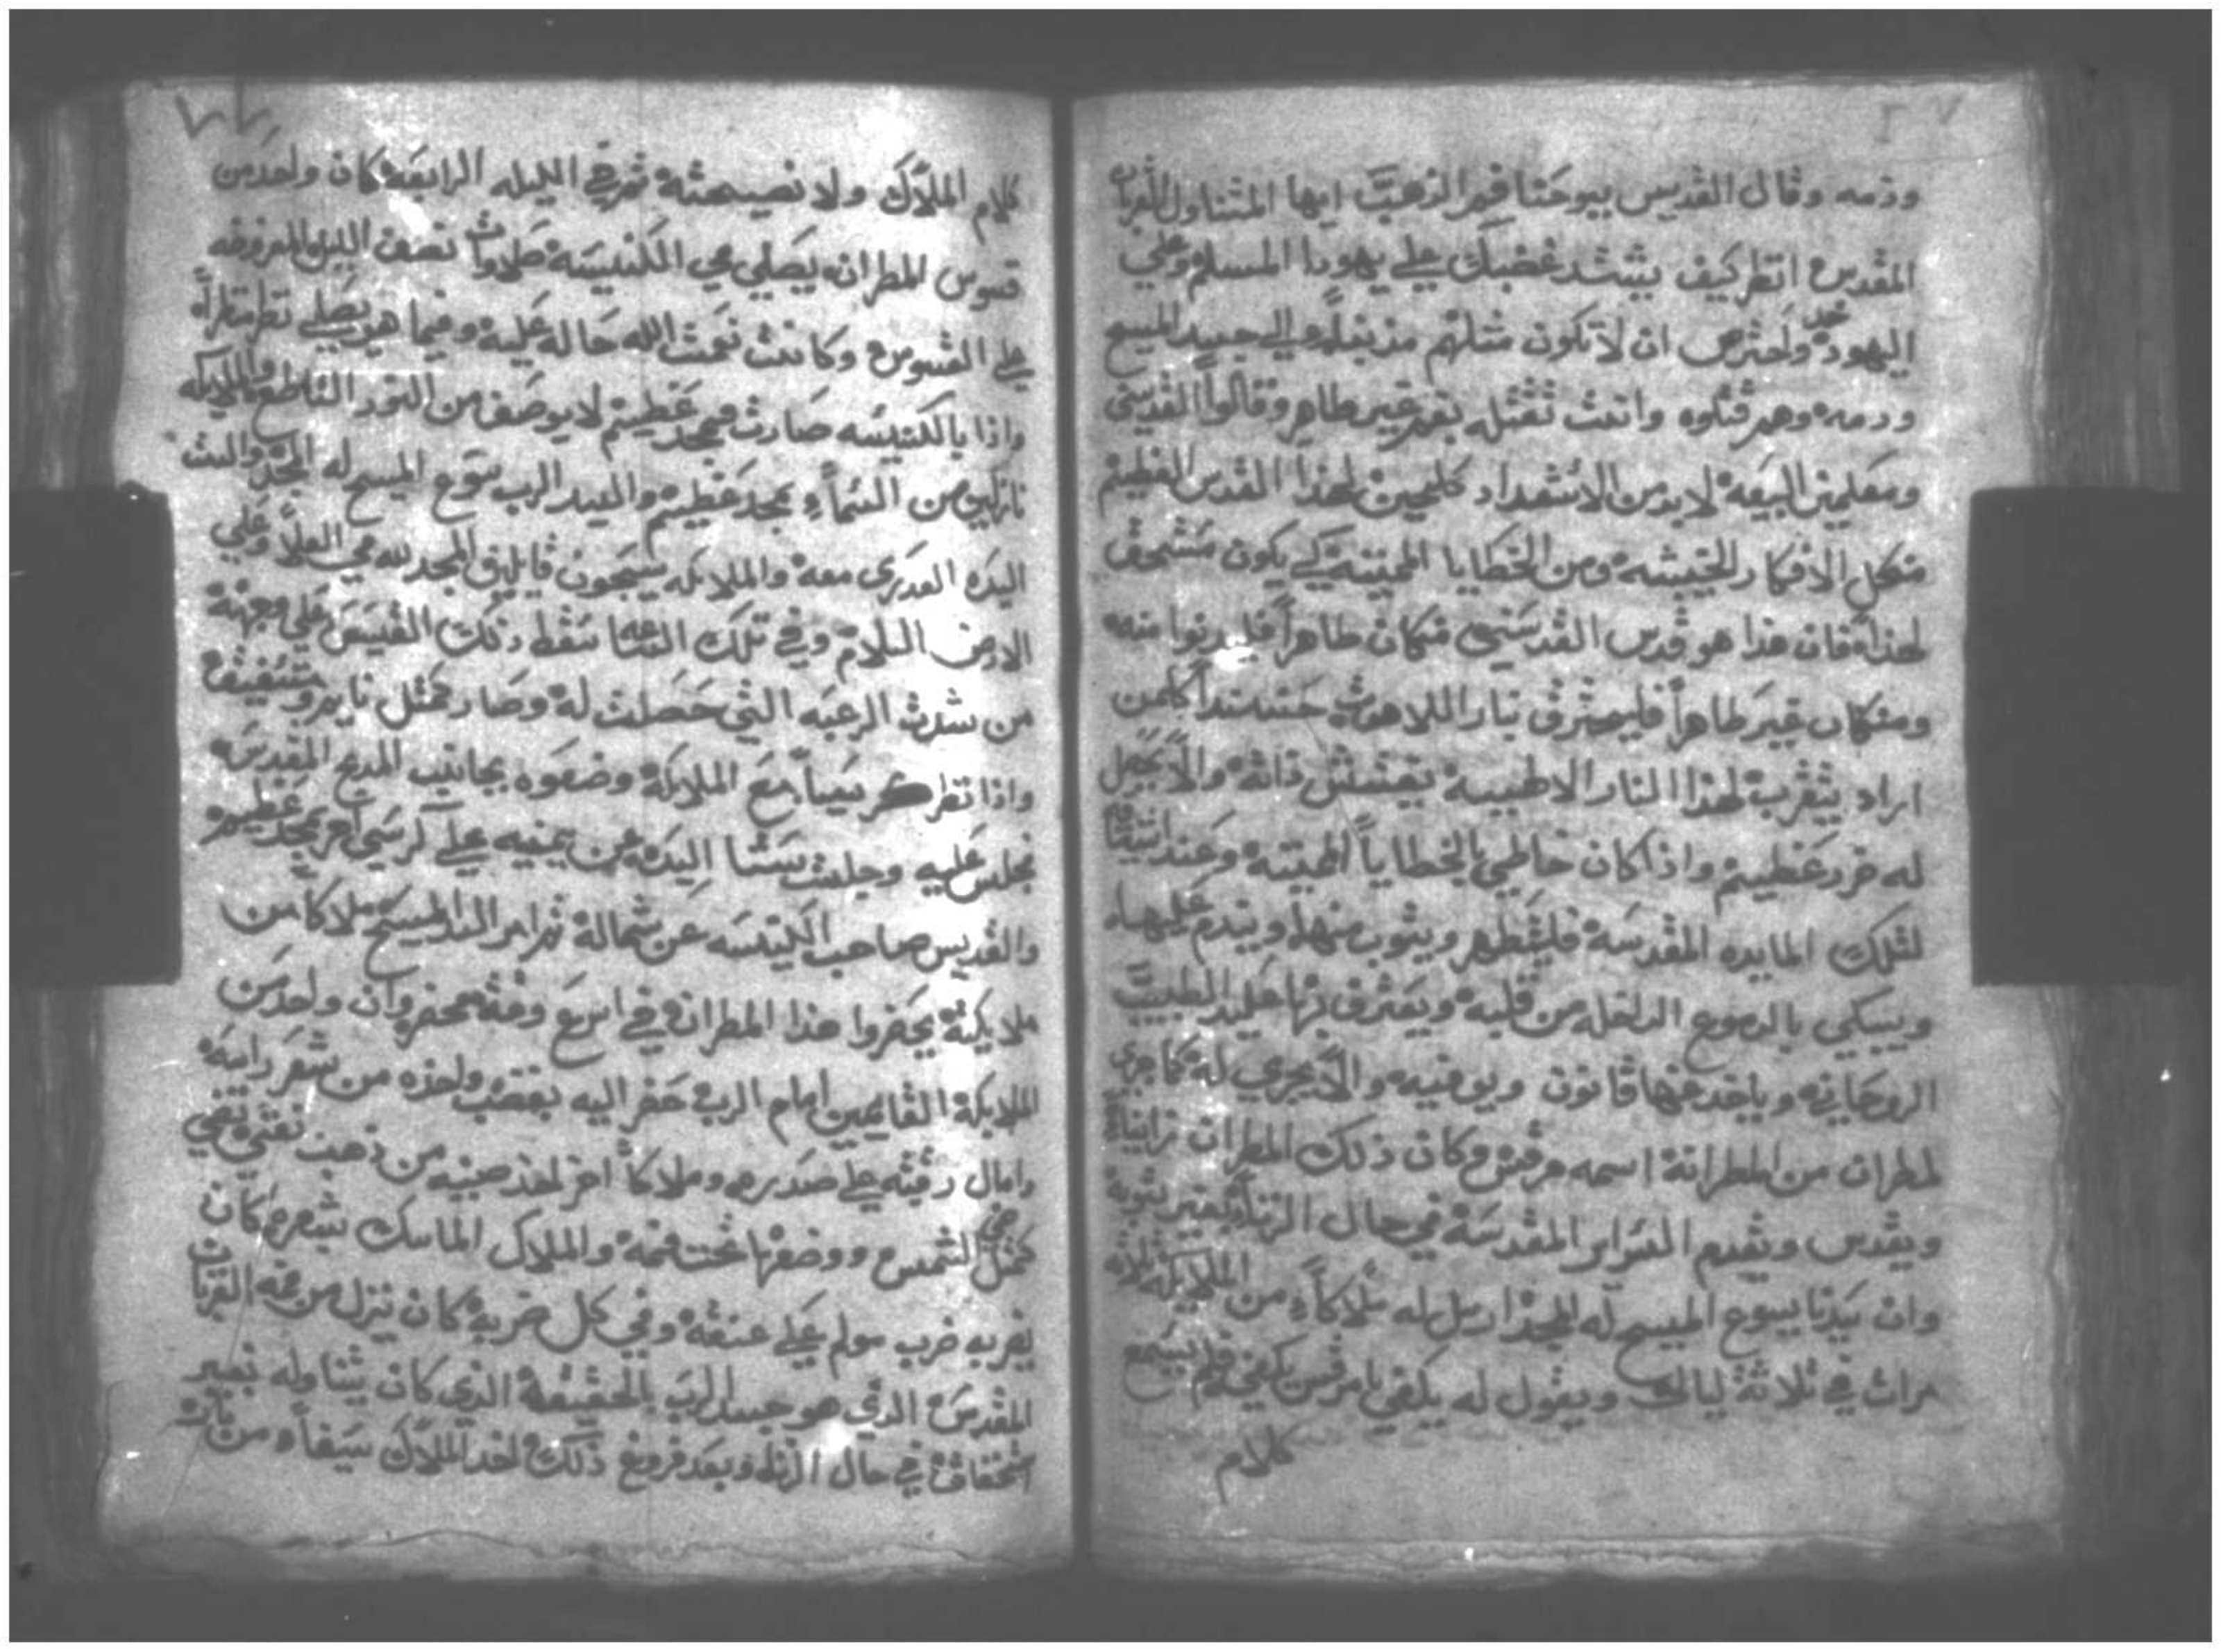 ودمه وقال القديس يوحنا فم الذهب ايها المتناول القربان
المقدس انظر كيف يشتد غضبك علي يهودا المسلم وعلي
اليهود واحترص ان لا تكون مثلهم مذنباً الي جسد المسيح
ودمه وهم قتلوه وانت تقتله بفم غير طاهر وقالوا القديسين
ومعلمين البيعة لا بد من الاستعداد كلحين لهذا القدس العظيم
منكل الافكار الخبيثه ومن الخطايا المميته لكي يكون مستحق
لهذا فان هذا هو قدس القديسين فمنكان طاهراً فليدنوا منه
ومنكان غير طاهراً فليحترق بنار اللاهوت كلمن
اراد يتقرب لهذا النار الالهيه يفتش ذاته والا يحصل
له ضرر عظيم واذا كان خاطي بالخطايا المميته وعند
لتلك المايده المقدسة فليتطهر ويتوب منها ويندم عليها
ويبكي بالدموع الداخله من قلبه ويعترف بها عليد الطبيب
الروحاني وياخد عنها قانون ويوفيه والا يجري له كما جري
لمطران من المطارنة اسمه مرقس وكان ذلك المطران زانياً
ويقدس ويقدم السراير المقدسة في حال الزنا بغير توبة
وان سيدنا يسوع المسيح له المجد ارسل له ملاكاً من الملايكه ثلاثة
مرات في ثلاثة ليالي ويقول له يكفي يا مرقس يكفي فلم يسمع
كلام
كلام الملاك ولا نصيحته ثم في الليله الرابعة كان واحد من
قسوس المطران يصلي في الكنيسة صلوات نصف الليل المفروضه
علي القسوس وكانت نعمت الله حاله عليه وفيما هو يصلي نظر منظراً
واذا بالكنيسه صارت في مجد عظيم لا يوصف من النور الساطع والملايكه
نازلين من السماء بمجد عظيم والسيد الرب يسوع المسيح له المجد والست
السيده العدرى معه والملايكه يسبحون قايلين المجد لله في العلا وعلي
الارض السلام وفي تلك الساعه سقط ذلك القسيس علي وجهه
من شدت الرعبه التي حصلت له وصار كمثل نايم ومستفيق
واذا نظر كرسياً مع الملايكة وضعوه بجانب المدبح المقدس
فجلس عليه وجلست ستنا السيده عن يمنيه علي كرسي اخر بمجد عظيم
والقديس صاحب الكنيسه عن شماله ثم امر السيد المسيح ملاكاً من
ملايكته يحضروا هذا المطران في اسرع وقت فحضر وان واحد من
الملايكة القايمين امام الرب حضر اليه بقضب واحده من شعر راسه
وامال رقبته علي صدره وملاكاً اخر اخذ صينيه من ذهب نقي تضي
كمثل ضي الشمس ووضعها تحت فمه والملاك الماسك شعره كان
يضربه ضرب مولم علي عنقه وفي كل ضربة كان ينزل من فمه القربان
المقدس الذي هو جسد الرب بالحقيقة الذي كان يتناوله بغير
استحقاق في حال الزنا وبعد فروغ ذلك اخد الملاك سيفاً من نار